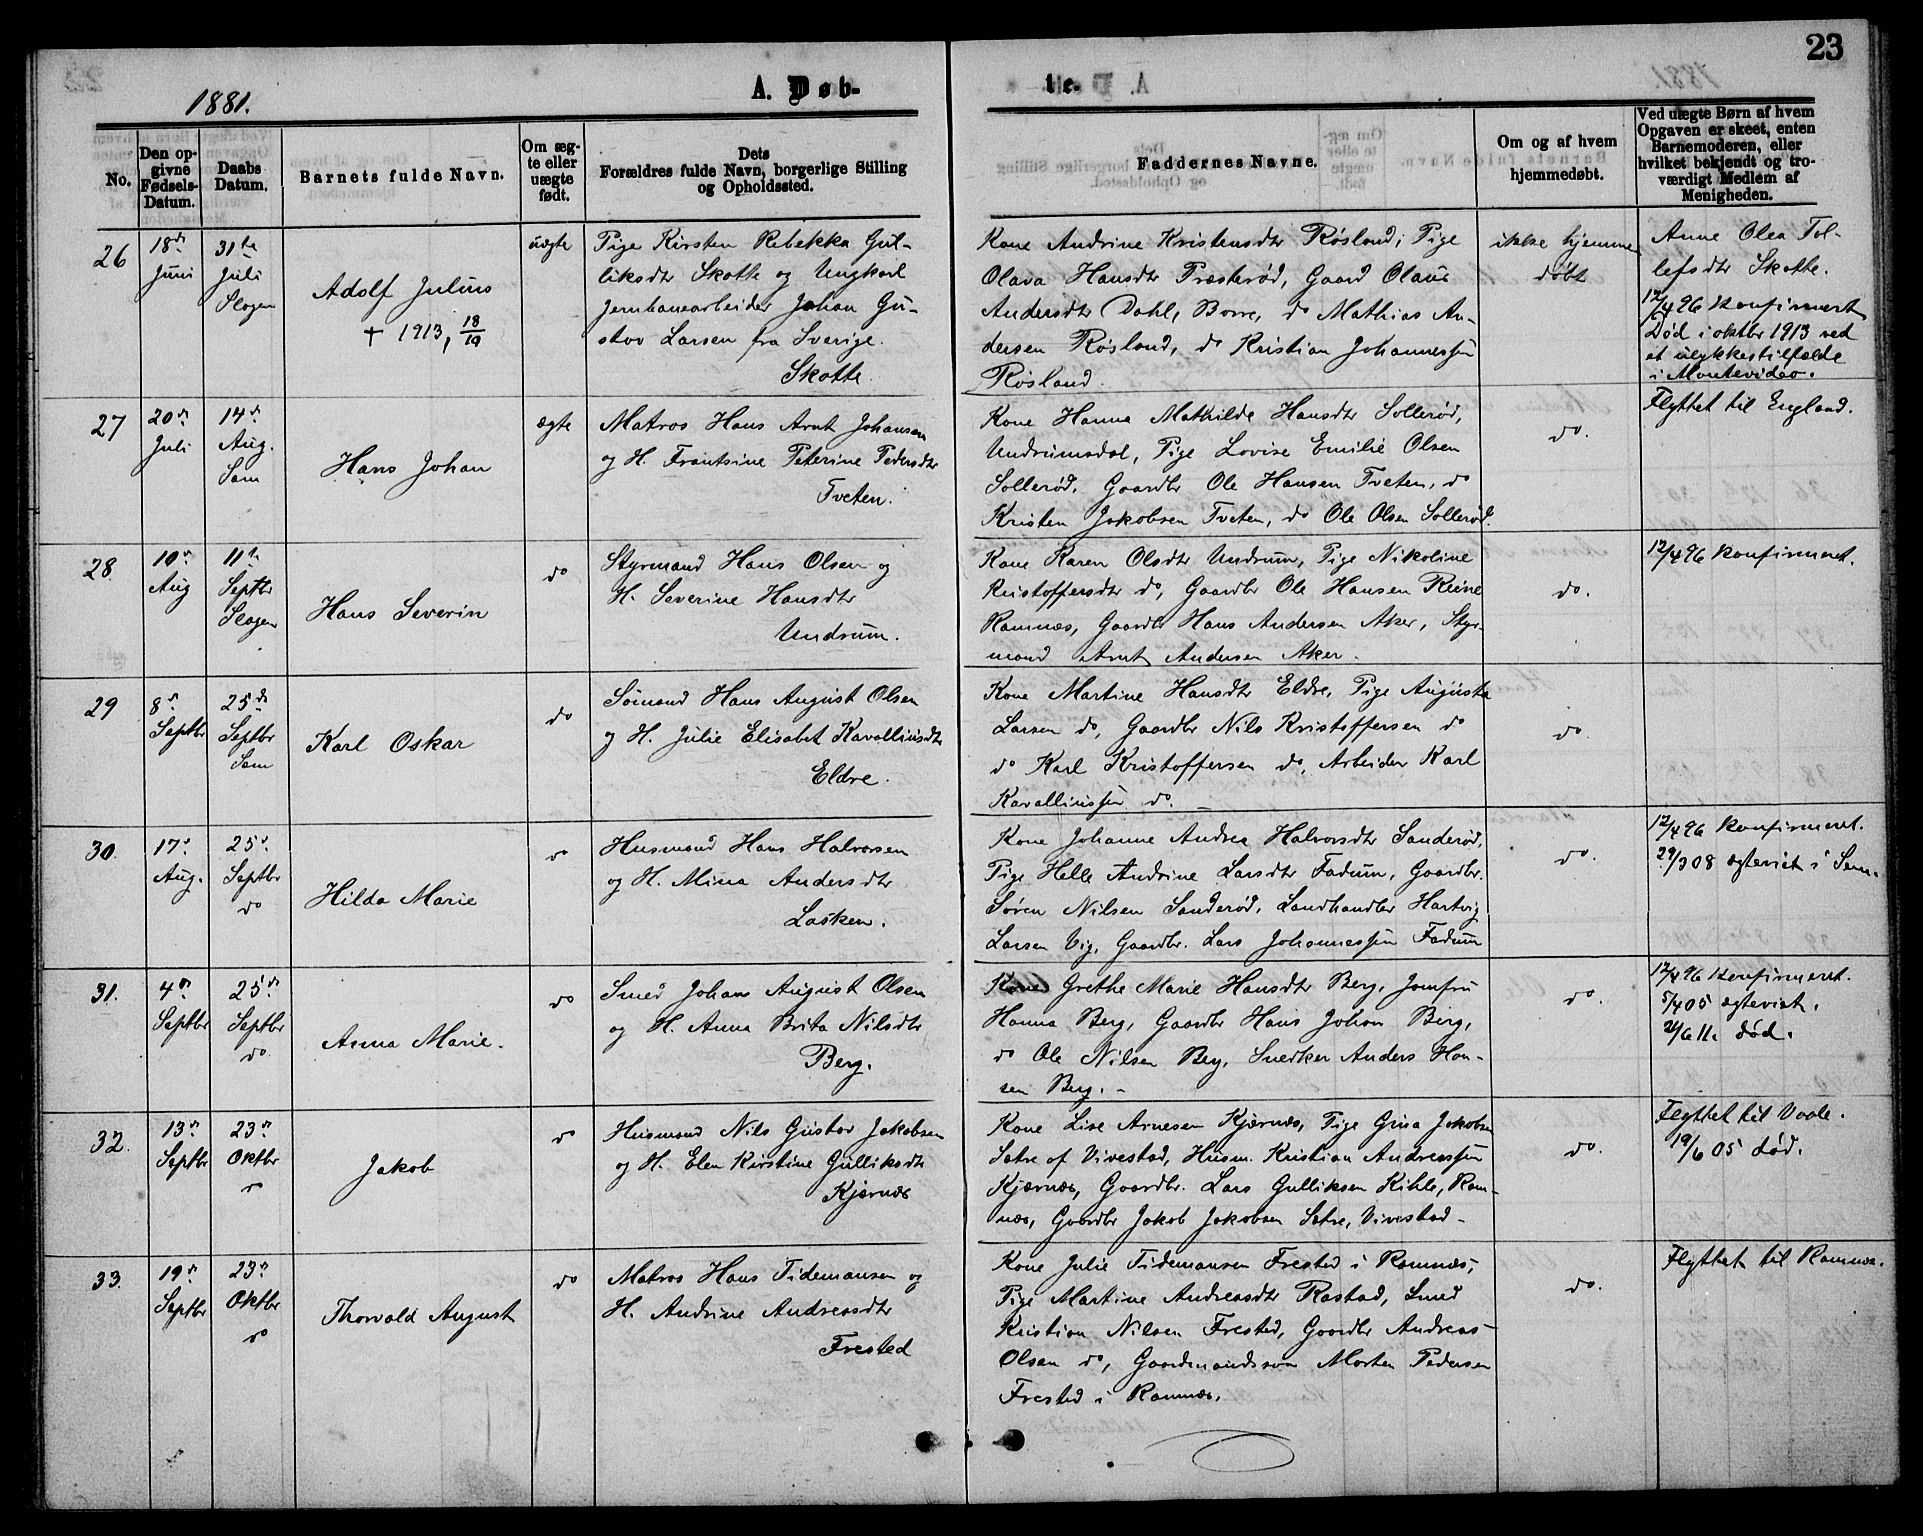 23
1881.
A. Døb-
te.
No.
Den op-
givne
Fødsels-
Datum.
Daabs
Datum.
Barnets fulde Navn.
Om æg-
te eller
uægte
født.
Dets
Forældres fulde Navn, borgerlige Stilling
og Opholdssted.
Faddernes Navne.
Om og af hvem
hjemmedøbt.
Ved uægte Børn af hvem
Opgaven er skeet, enten
Barnemoderen, eller
hvilket bekjendt og tro-
værdigt Medlem af
Menigheden.
26
18de
Juni
31te
Juli
Slagen
Adolf Julius
† 1913, 18/10
uægte
Pige Kirsten Rebekka Gul-
liksdtr Skotte og Ungkarl
Jernbanearbeider Johan Gu-
stav Larsen fra Sverige.
Skotte.
Kone Andrine Kristensdtr Røsland; Pige
Olava Hansdtr Præsterød, Gaard Olaus
Andersdtr Dahl, Borre, do Mathias An-
dersen Røsland, do Kristian Johannessen
Røsland.
ikke hjemme
døbt
Anne Olea Tol-
lefsdtr Skotte.
12/4 96 Konfirmeret
Død i oktbr 1913 ved
et ulykkestilfælde
i Montevideo.
27
20de
Juli
14de
Aug.
Sem
Hans Johan
ægte
Matros Hans Arnt Johansen
og H. Frantsine Peterine Pedersdtr
Tveten.
Kone Hanna Mathilde Hansdtr Sollerød,
Undrumsdal, Pige Lovise Emilie Olsen
Sollerød. Gaardbr Ole Hansen Tveten, do
Kristen Jakobsen Tveten, do Ole Olsen Sollerød.
do.
Flyttet til England.
28
10de
Aug
11te
Septbr
Slagen
Hans Severin
do
Styrmand Hans Olsen og
H. Severine Hansdtr
Undrum.
Kone Karen Olsdtr Undrum, Pige Nikoline
Kristoffersdtr do, Gaardbr Ole Hansen Reine
Ramnæs, Gaardbr Hans Andersen Aker, Styr-
mand Arnt Andersen Aker.
do.
12/4 96 Konfirmeret.
29
8de
Septbr
25de
Septbr
Sem
Karl Oskar
do
Sømand Hans August Olsen
og H. Julie Elisabet Kavalliusdtr
Eldre.
Kone Martine Hansdtr Eldre, Pige Augusta
Larsen do, Gaardbr Nils Kristoffersen do
do Karl Kristoffersen do, Arbeider Karl
Kavalliussen do.
do.
30.
17de
Aug.
25de
Septbr
do
Hilda Marie
do
Husmand Hans Halvorsen
og H. Mina Andersdtr
Lasken.
Kone Johanne Andrea Halvorsdtr Sanderød,
Pige Helle Andrine Larsdtr Fadum, Gaardbr.
Søren Nilsen Sanderød, Landhandler Hartvig
Larsen Vig, Gaardbr. Lars Johannessen Fadum
do.
12/4 96 Konfirmeret.
29/3 08 ægteviet i Sem.
31.
4de
Septbr
25de
Septbr
do
Anna Marie.
do
Smed Johan August Olsen
og H. Anna Brita Nilsdtr
Berg.
Kone Grethe Marie Hansdtr Berg, Jomfru
Hanna Berg, Gaardbr Hans Johan Berg,
do Ole Nilsen Berg, Snedker Anders Han-
sen Berg. -
do.
12/4 96 Konfirmeret.
5/4 05 ægteviet.
/6 11. død.
32.
13de
Septbr
23de
Oktbr
do
Jakob
do
Husmand Nils Gustav Jakobsen
og H. Elen Kirstine Gulliksdtr
Kjærnæs
Kone Lise Arnesen Kjærnæs, Pige Grina Jakobsen
Sætre af Vivestad, Husm. Kristian Andreassen
Kjærnæs, Gaardbr. Lars Gulliksen Kihle, Ram-
næs, Gaardbr Jakob Jakobsen Sætre, Vivestad -
do.
Flyttet til Vaale.
19/6 05 død.
33.
19de
Septbr
23de
Oktbr
do
Thorvald August
do
Matros Hans Tidemansen og
H. Andrine Andreasdtr
Frested
Kone Julie Tidemansen Frested i Ramnæs,
Pige Martine Andreasdtr Rastad, Smed
Kristian Nilsen Frested, Gaardbr Andreas
Olsen do, Gaardmandssøn Morten Pedersen
Frested i Ramnæs.
do.
Flyttet til Ramnæs.